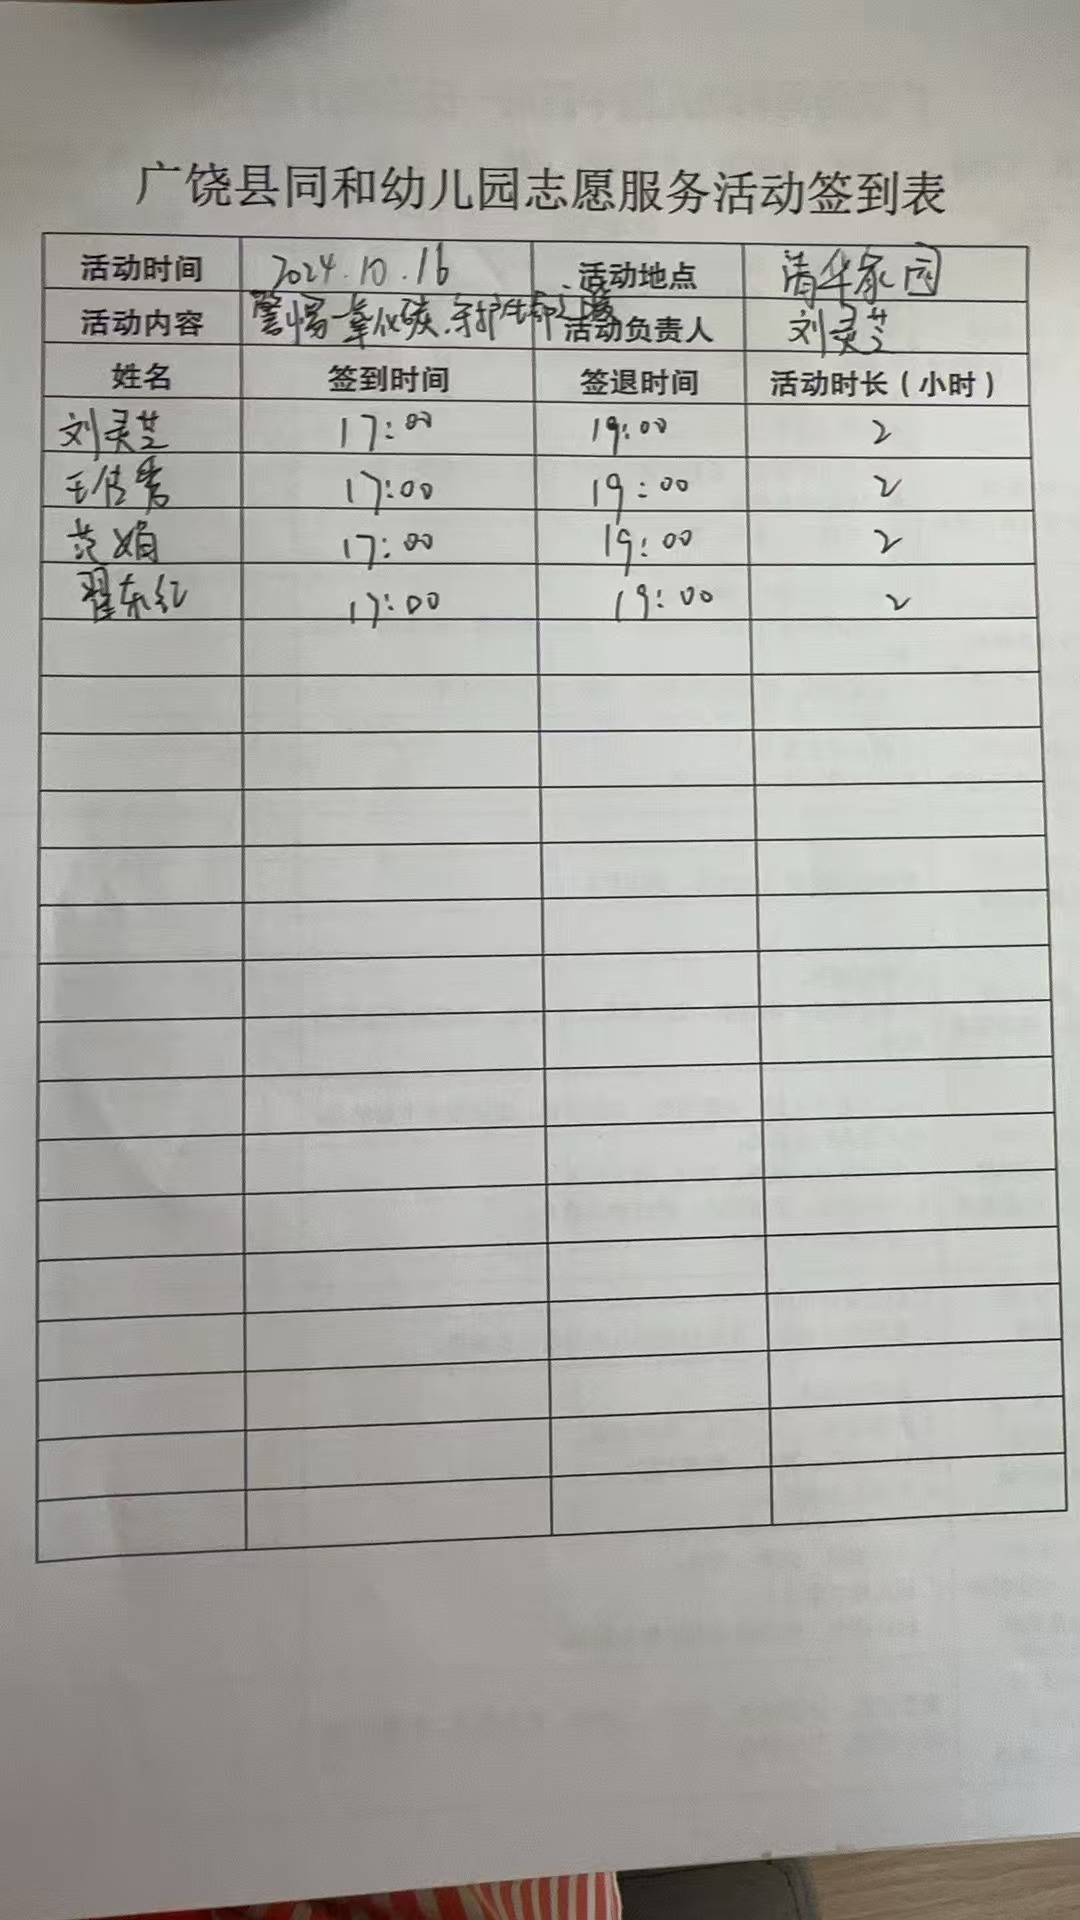 广饶县同和幼儿园志愿服务活动签到表
活动时间 2024.10.16 活动地点 清华家园
活动内容 警惕一氧化碳.守护生命之 活动负责人 刘灵芝
姓名 签到时间 签退时间 活动时长（小时）
刘灵芝 17:00 19:00 2
王传秀 17:00 19:00 2
范娟 17:00 19:00 2
翟东红 17:00 19:00 2